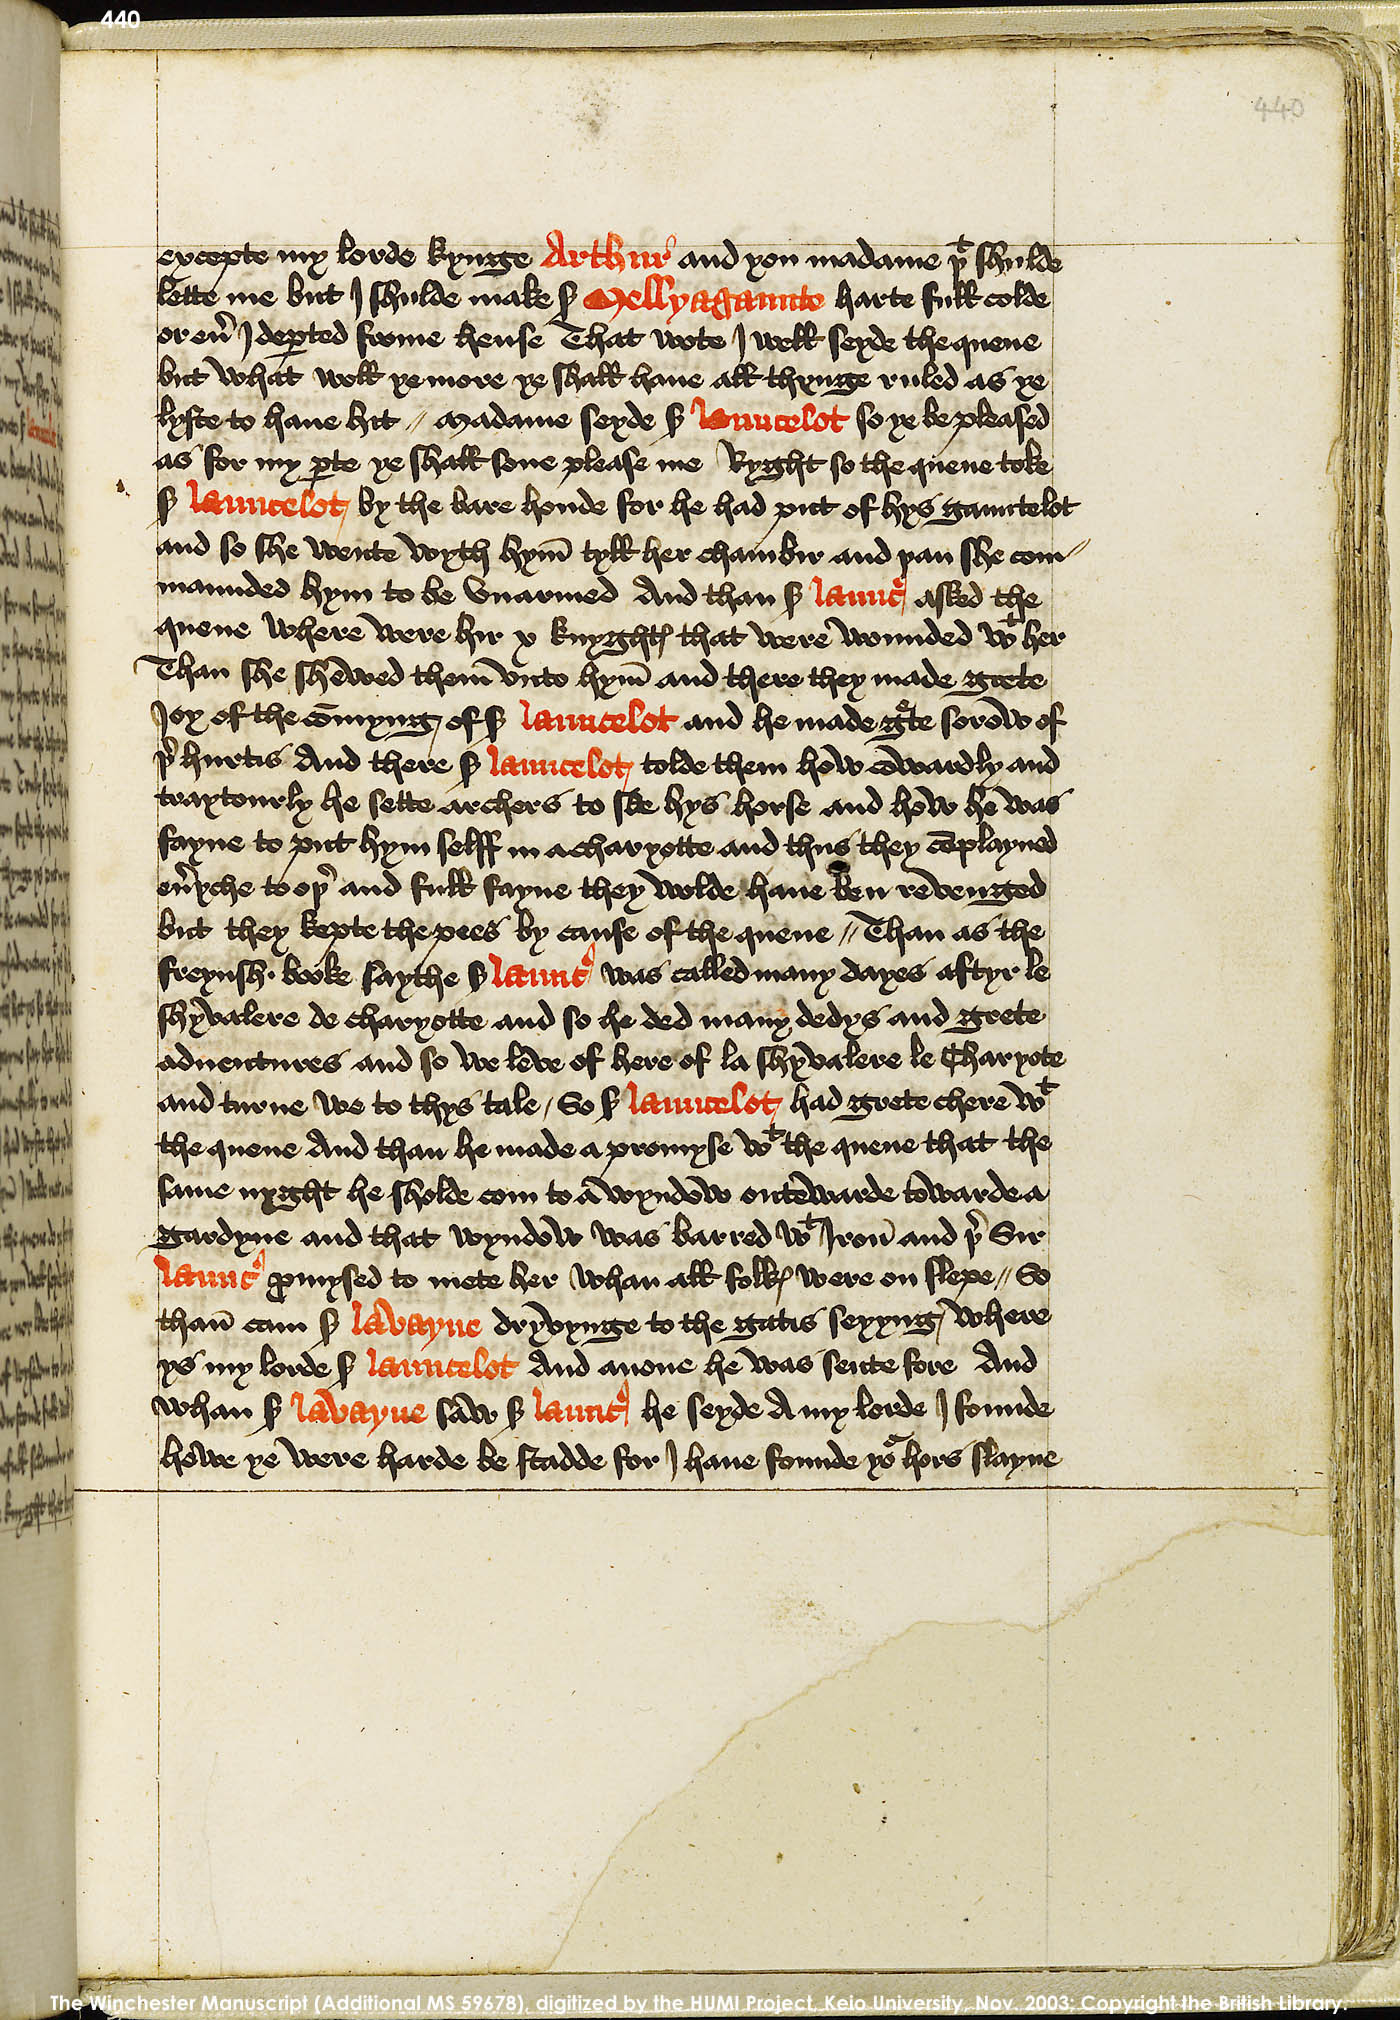 440
440
excepte my lorde kynge Arthur and you madame þt shulde
lette me but I shulde make sʳ Mellyagaunte harte full colde
or eu̅ I deꝑted frome hense That wote I well seyde the quene
but what woll ye more ye shall haue all thynge ruled as ye
lyste to haue hit // Madame seyde sʳ launcelot so ye be pleased
as for my ꝑte ye shall sone please me Ryght so the quene toke
sʳ launcelot by the bare honde for he had put of hys gauntelot
and so she wente wyth hym̅ tyll her chambir and þan she com-
maunded hym to be vnarmed And than sʳ launcʳ asked the
quene where were hir x knyghtꝭ that were wounded wt her
Than she shewed them̅ vnto hym̅ and there they made grete
Joy of the co̅myng of sʳ launcelot and he made gʳte sorow of
þʳ hurtis And there sʳ launcelot tolde them how cowardly and
traytourly he sette archers to sle hys horse and how he was
fayne to put hym selff in a charyotte and thus they co̅playned
eu̅yche to oþʳ and full fayne they wolde haue ben revenged
but they kepte the pees by cause of the quene // Than as the
freynsh booke saythe sʳ launcʳ was called many dayes aftyr le
shyvalere de charyotte and so he ded many dedys and grete
aduentures and so we leve of here of la shyvalere le Charyote
and turne we to thys tale / So sʳ launcelot had grete chere wt
the quene And than he made a promyse wt the quene that the
same nyght he sholde com to a wyndow outewarde towarde a
gardyne and that wyndow was barred wt Iron̅ and þʳ Sir
launcʳ ꝓmysed to mete her whan all folkꝭ were on slepe // So
than̅ cam sʳ lavayne dryvynge to the gatis seyyng where
ys my lorde sʳ launcelot And anone he was sente fore And
whan sʳ lavayne saw sʳ launcʳ he seyde A my lorde I founde
howe ye were harde be stadde for I haue founde yoʳ hors slayne
The Winchester Manuscript (Additional MS 59678), digitized by the HUMI Project, Keio University, Nov. 2003; Copyright the British Library.